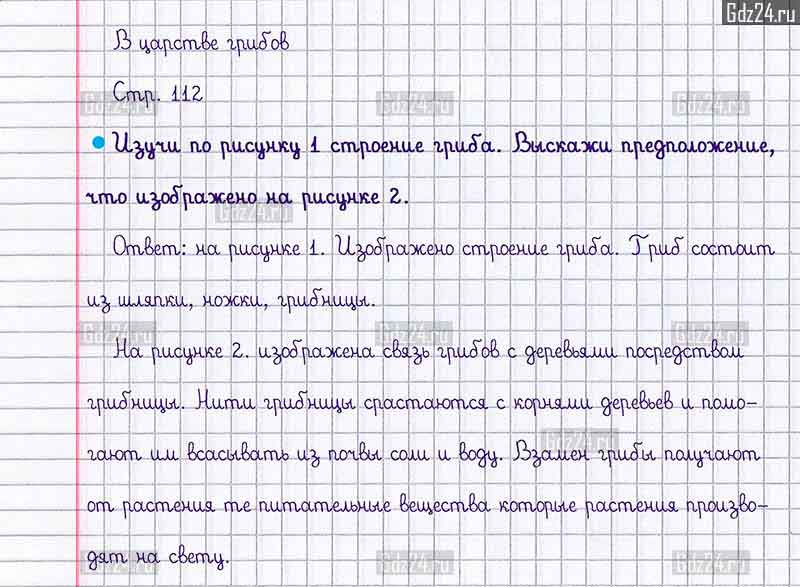 Gdz24.ru
В царстве грибов
Стр. 112
Изучи по рисунку 1 строение гриба. Выскажи предположение,
что изображено на рисунке 2.
Ответ: на рисунке 1. Изображено строение гриба. Гриб состоит
из шляпки, ножки, грибницы.
На рисунке 2. изображена связь грибов с деревьями посредством
грибницы. Нити грибницы срастаются с корнями деревьев и помо-
гают им всасывать из почвы соли и воду. Взамен грибы получают
от растения те питательные вещества которые растения произво-
дят на свету.